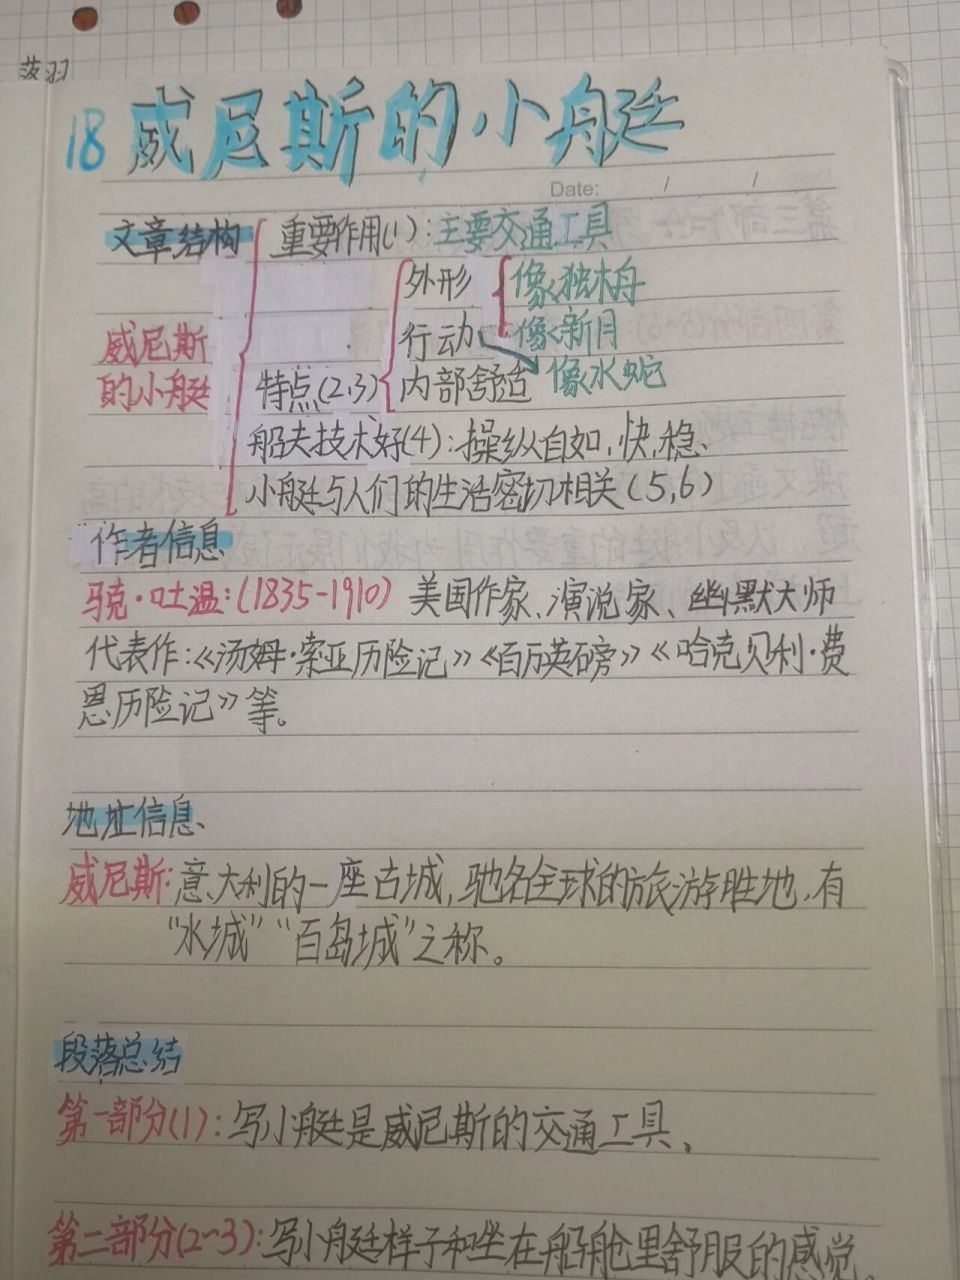 18 威尼斯的小艇
Date: / /
文章结构 重要作用(1):主要交通工具
外形 像独木舟
威尼斯 行动 像新月
的小艇 特点(2,3) 内部舒适 像水蛇
船夫技术好(4):操纵自如,快,稳、
小艇与人们的生活密切相关(5,6)
作者信息
马克·吐温:(1835-1910) 美国作家、演说家、幽默大师
代表作:《汤姆·索亚历险记》《百万英磅》《哈克贝利·费
恩历险记》等。
地址信息、
威尼斯:意大利的一座古城,驰名全球的旅游胜地,有
“水城”“百岛城”之称。
段落总结
第一部分(1):写小艇是威尼斯的交通工具、
第二部分(2~3):写小艇样子和坐在船舱里舒服的感觉、